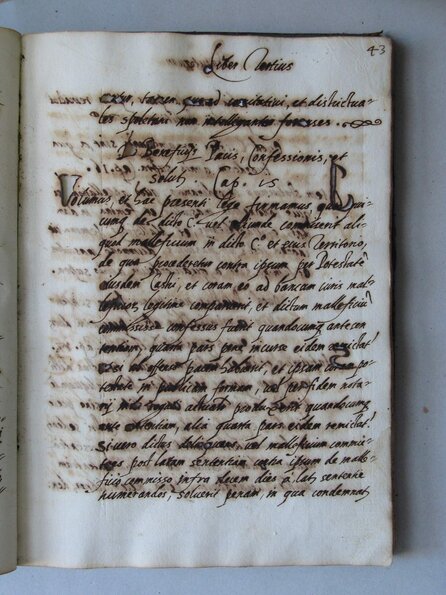 43
Liber Tertius
tamen quod comitativi, et districtua=
les spectent non intelligantur forenses.
D Beneficijs Pacis, Confessionis, et
Solut. Cap. 15
Volumus, et hac presenti lege firmamus quod qui
cunq de dicto C. vel aliunde commiserit ali=
quod malleficium in dicto C. et eius Territorio,
de quo procederetur contra ipsum per Potestatē
eiusdem Castri, et coram eo ad bancum iuris mal=
legitime comparuerit, et dictum malleficiū
commisisse confessus fuerit quandocunq ante sen
tentiam, quarta pars pene incurse eidem remictat.
et ab offenso pacem habuerit, et ipsam coram po=
testate in publicam formam, vel per fidem nota
rij rogati produxerit quandocunq
ante sententiam, alia quarta pars eidem remictat.
Si vero dictus delinquens, vel malleficium commic=
tens post latam sententiam contra ipsum de malle=
ficio commisso infra decem dies a lata sententia
numerandos, solverit penam, in qua condemnat